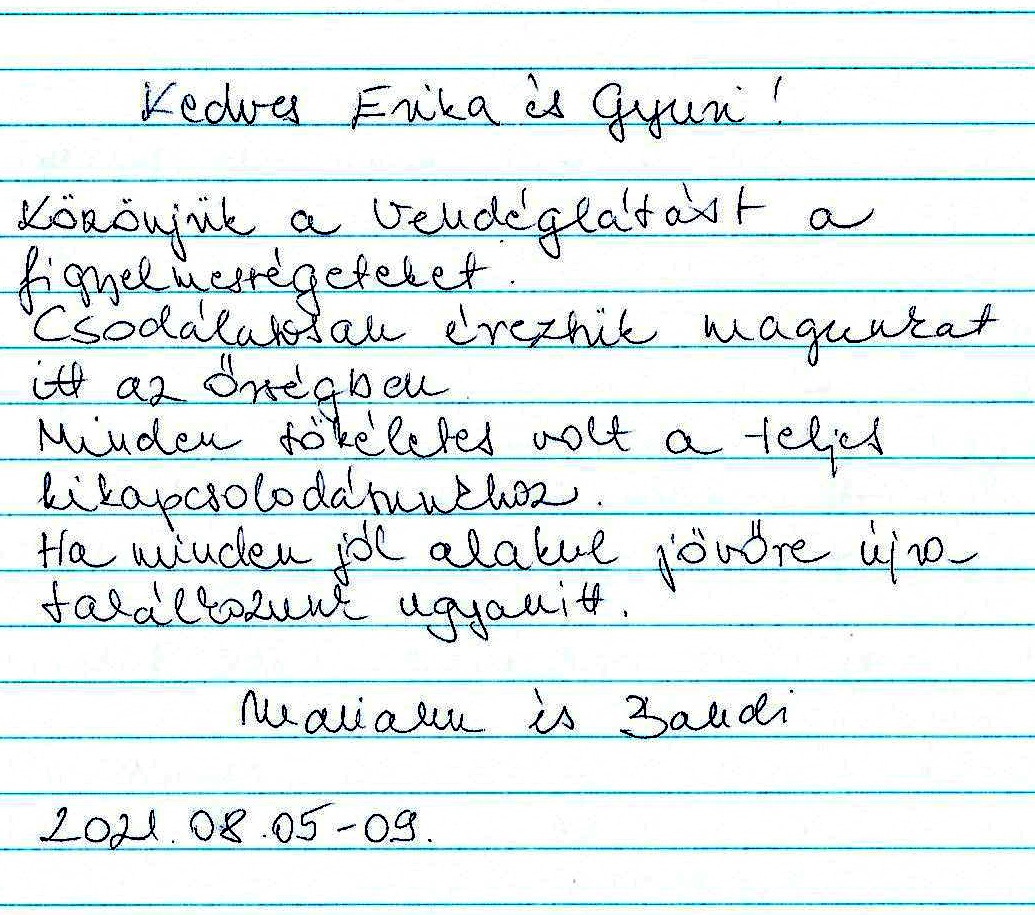 Kedves Erika és Gyuri!
Köszönjük a vendéglátást a
figyelmességeteket.
Csodálatosan éreztük magunkat
itt az Őrségben
Minden tökéletes volt a teljes
kikapcsolodásunkhoz.
Ha minden jól alakul jövőre újra
találkozunk ugyanitt.
Mariann és Bandi
2021.08.05-09.